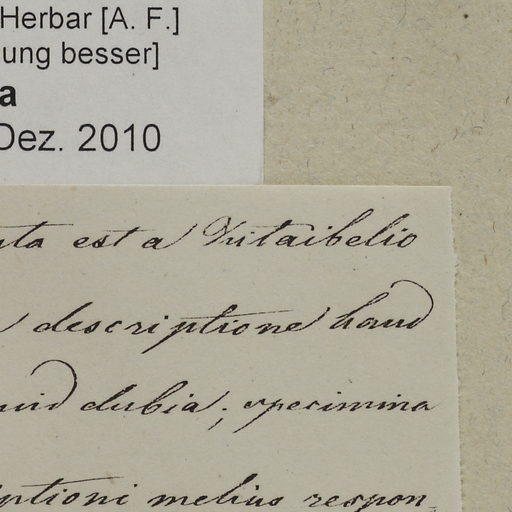 Herbar [A. F.]
ung besser]
a
Dez. 2010
ta est a Kitaibelio
descriptione haud
uid dubia; specimina
iptioni melius respon-